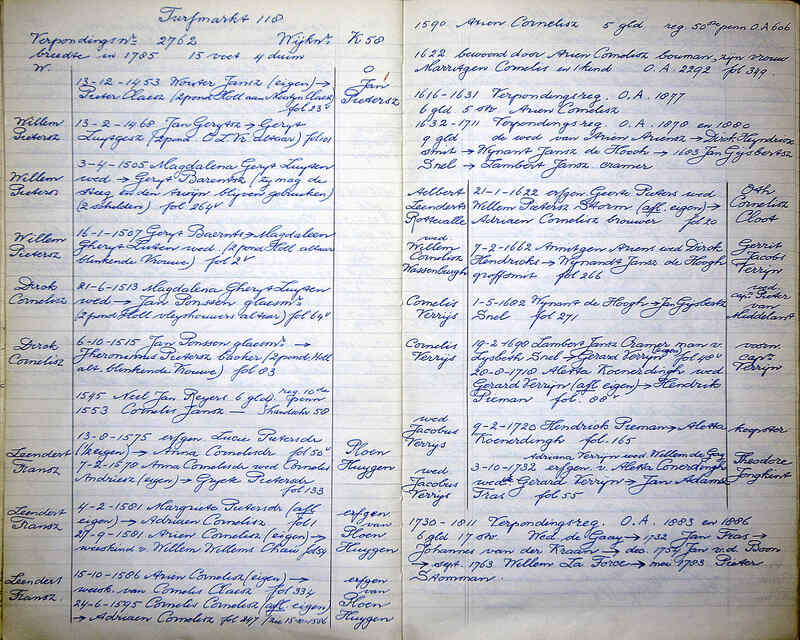 Turfmarkt 118
Verpondingsnr. 2762 Wijknr. K 58
breedte in 1785 15 voet 4 duim
W. O
13-12-1453 Wouter Jansz (eigen) →
Pieter Claesz (2 pond Holl aan Claesz)
fol 23v
Jan Pietersz
Willem Pietersz
13-2-1468 Jan Gerytsz → Geryt
Luytgesz (2 pond O.L.Vr. altaar) fol 101
Willem Pietersz
3-4-1505 Magdalena Geryt Luyten
wed → Geryt Barentsz (zy mag de
steeg en den blyven gebruiken)
(2 schilden) fol 264v
Willem Pietersz
16-1-1507 Geryt Baerntsz → Magdaleen
Gheryt Luten wed. (2 pond Holl altaar
blinkende Vrouwe) fol 2v
Dirck Cornelisz
21-6-1513 Magdalena Gheryt Luyten
wed → Jan Ponssen glaesmr.
(2 pond Holl vleyshouwers altaar) fol 64v
Dirck Cornelisz
6-10-1515 Jan Ponsson glaesmr. →
Jheronimus Pietersz backer (2 pond Holl
alt. blinkende Vrouwe) fol 83
1545 Neel Jan Reyers 6 gld. reg. 10de penn
1553 Cornelis Jansz — 58
13-8-1575 erfgen Lucie Pietersdr
(½ eigen) → Anna Cornelisdr fol 50v
Leendert Fransz
Ploen Huygen
7-2-1578 Anna Cornelisdr wed Cornelis
Andriesz (eigen) → Gryete Pietersdr
fol 133
Leendert Fransz
4-2-1581 Margriete Pietersdr (afl
eigen) → Adriaen Cornelisz fol 1
27-9-1581 Arien Cornelisz (eigen) →
weeskind v. Willem Willems fol 54
erfgen van Ploen Huygen
Leendert Fransz.
15-10-1586 Arien Cornelisz (eigen) →
weesk. van Cornelis Claesz fol 334
24-6-1595 Cornelis Cornelisz (afl. eigen)
→ Adriaen Cornelisz fol 247 / zie 15-10-1586
erfgen van Ploen Huygen
1590 Arien Cornelisz 5 gld reg 50ste penn O.A 606
1622 bewoond door Arien Cornelisz bouman, zijn vrouw
Marritgen Cornelis en 1 kind O.A. 2292 fol 349.
1616-1631 Verpondingsreg. O.A. 1877
6 gld 5 str. Arien Cornelisz
1632-1711 Verpondings reg O.A. 1878 en 1880
9 gld de wed van Arien Ariensz → Dirck Heyndricx
smit → Wynant Jansz de Hooch → 1683 Jan Gysbertsz
Snel → Lambert Jansz cramer
Aelbert Leenderts Rottevalle
21-1-1622 erfgen Geerte Pieters wed
Willem Pietersz Storm (afl. eigen) →
Adriaen Cornelisz brouwer fol 20
Oth Cornelisz Cloot
wed Willem Cornelisz Wassenburgh
7-2-1662 Annitgen Ariens wed Dirck
Hendricks → Wynandt Jansz de Hoogh
grofsmit → fol 266
Gerrit Jacobs Verryn
Cornelis Verrijs
1-5-1682 Wynant de Hoogh → Jan Gysbertsz
Snel fol 271
wed capt Pieter van Middelant
Cornelis Verrijs
19-2-1690 Lambert Jansz Cramer man v.
Lysbeth Snel → Gerard Verryn (eigen) fol 40v
20-8-1718 Aletta Koenerdingh wed
Gerard Verryn (afl eigen) → Hendrik
Pieman fol. 88v
voorn. capt Verryn
wed Jacobus Verrijs
9-2-1720 Hendrick Pieman → Aletta
Koenerdingh fol. 165
koopster
wed Jacobus Verrijs
Adriana Verryn wed Willem de Gay
3-10-1732 erfgen v. Aletta Conerdingh
wedr. Gerard Verryn → Jan Adams
Fras → fol 55
Theodore Jongkint
1730-1811 Verpondingsreg. O.A. 1883 en 1886
6 gld 17 str. Wed. de Gaay → 1732 Jan Fras →
Johannes van der Kraan → dec. 1754 Jan v.d. Boon
→ sept. 1763 Willem La Force → mei 1783 Pieter
Stomman.